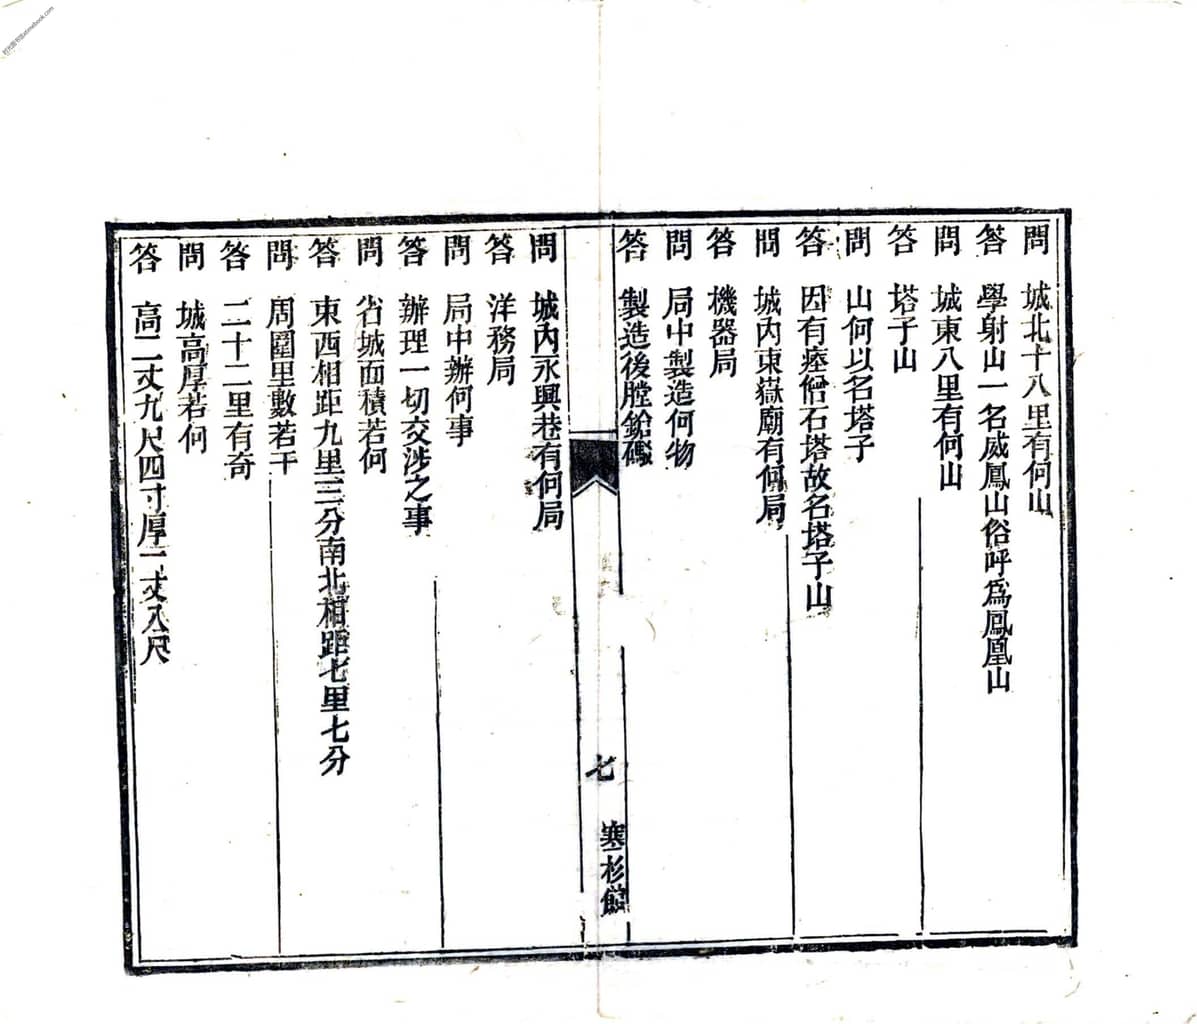 問　城北十八里有何山
答　學射山一名威鳳山俗呼爲鳳凰山
問　城東八里有何山
答　塔子山
問　山何以名塔子
答　因有瘞僧石塔故名塔子山
問　城內東嶽廟有何局
答　機器局
問　局中製造何物
答　製造後膛鎗礮
七　寒杉館
問　城內永興巷有何局
答　洋務局
問　局中辦何事
答　辦理一切交涉之事
問　省城面積若何
答　東西相距九里三分南北相距七里七分
問　周圍里數若干
答　二十二里有奇
問　城高厚若何
答　高二丈九尺四寸厚一丈八尺